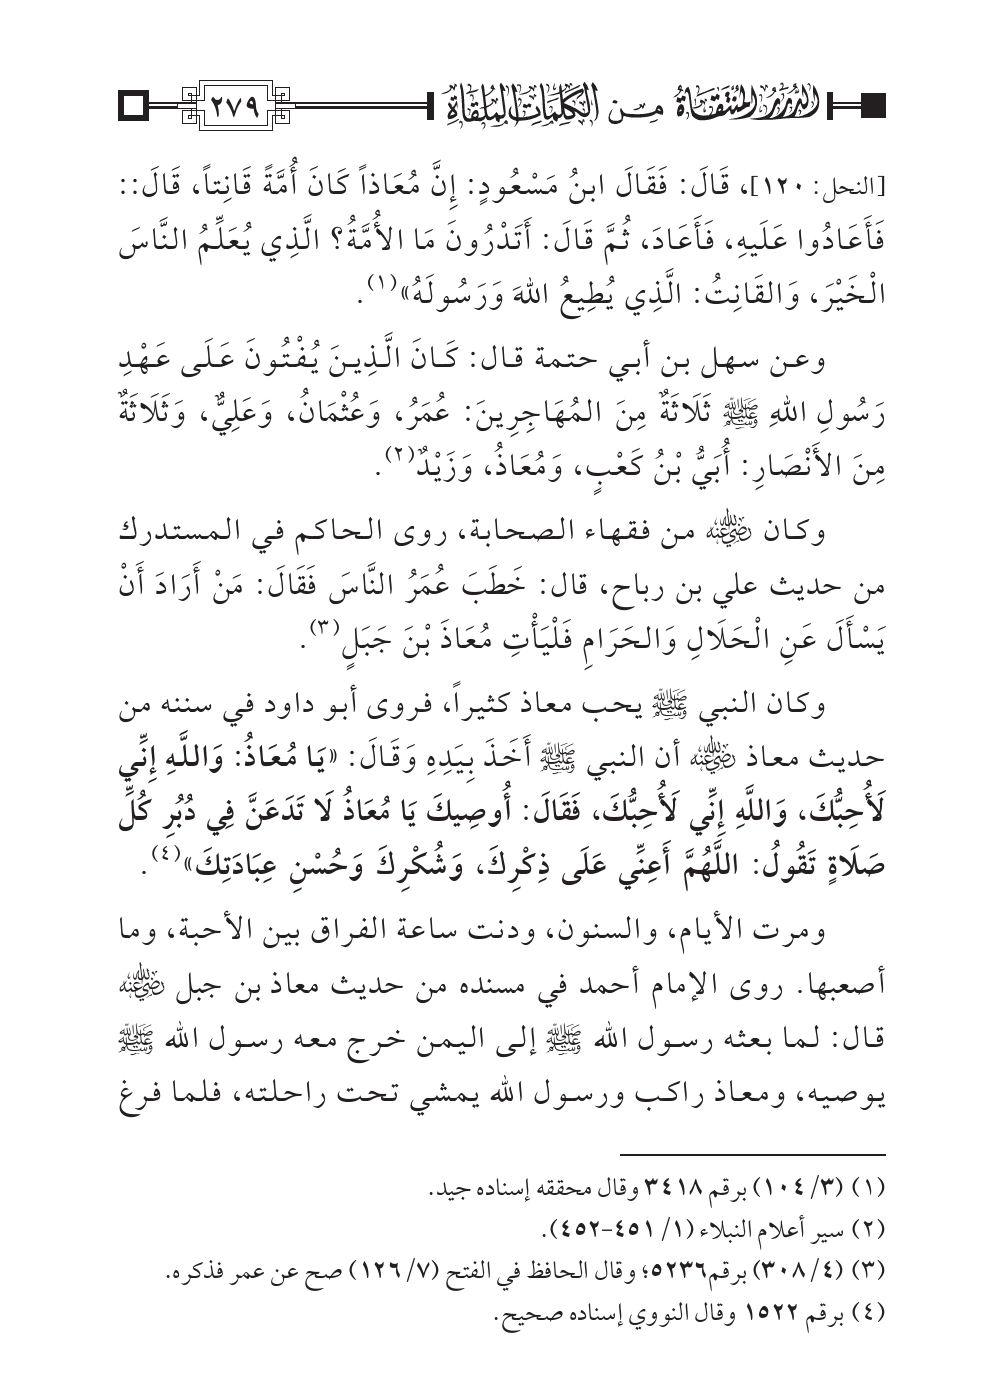 الدُّرَرُ المُنْتَقَاةُ مِنَ الكَلِمَاتِ المُلْقَاةِ ٢٧٩
[النحل: ١٢٠]، قَالَ: فَقَالَ ابنُ مَسْعُودٍ: إِنَّ مُعَاذاً كَانَ أُمَّةً قَانِتاً، قَالَ::
فَأَعَادُوا عَلَيهِ، فَأَعَادَ، ثُمَّ قَالَ: أَتَدْرُونَ مَا الأُمَّةُ؟ الَّذِي يُعَلِّمُ النَّاسَ
الْخَيْرَ، وَالقَانِتُ: الَّذِي يُطِيعُ اللهَ وَرَسُولَهُ»(١).
وعن سهل بن أبي حتمة قال: كَانَ الَّذِينَ يُفْتُونَ عَلَى عَهْدِ
رَسُولِ اللهِ ﷺ ثَلَاثَةٌ مِنَ المُهَاجِرِينَ: عُمَرُ، وَعُثْمَانُ، وَعَلِيٌّ، وَثَلَاثَةٌ
مِنَ الأَنْصَارِ: أُبَيُّ بْنُ كَعْبٍ، وَمُعَاذُ، وَزَيْدٌ(٢).
وكان رضي الله عنه من فقهاء الصحابة، روى الحاكم في المستدرك
من حديث علي بن رباح، قال: خَطَبَ عُمَرُ النَّاسَ فَقَالَ: مَنْ أَرَادَ أَنْ
يَسْأَلَ عَنِ الْحَلَالِ وَالحَرَامِ فَلْيَأْتِ مُعَاذَ بْنَ جَبَلٍ(٣).
وكان النبي ﷺ يحب معاذ كثيراً، فروى أبو داود في سننه من
حديث معاذ رضي الله عنه أن النبي ﷺ أَخَذَ بِيَدِهِ وَقَالَ: «يَا مُعَاذُ: وَاللَّهِ إِنِّي
لَأُحِبُّكَ، وَاللَّهِ إِنِّي لَأُحِبُّكَ، فَقَالَ: أُوصِيكَ يَا مُعَاذُ لَا تَدَعَنَّ فِي دُبُرِ كُلِّ
صَلَاةٍ تَقُولُ: اللَّهُمَّ أَعِنِّي عَلَى ذِكْرِكَ، وَشُكْرِكَ وَحُسْنِ عِبَادَتِكَ»(٤).
ومرت الأيام، والسنون، ودنت ساعة الفراق بين الأحبة، وما
أصعبها. روى الإمام أحمد في مسنده من حديث معاذ بن جبل رضي الله عنه
قال: لما بعثه رسول الله ﷺ إلى اليمن خرج معه رسول الله ﷺ
يوصيه، ومعاذ راكب ورسول الله يمشي تحت راحلته، فلما فرغ
(١) (٣/ ١٠٤) برقم ٣٤١٨ وقال محققه إسناده جيد.
(٢) سير أعلام النبلاء (١/ ٤٥١-٤٥٢).
(٣) (٤/ ٣٠٨) برقم٥٢٣٦؛ وقال الحافظ في الفتح (٧/ ١٢٦) صح عن عمر فذكره.
(٤) برقم ١٥٢٢ وقال النووي إسناده صحيح.